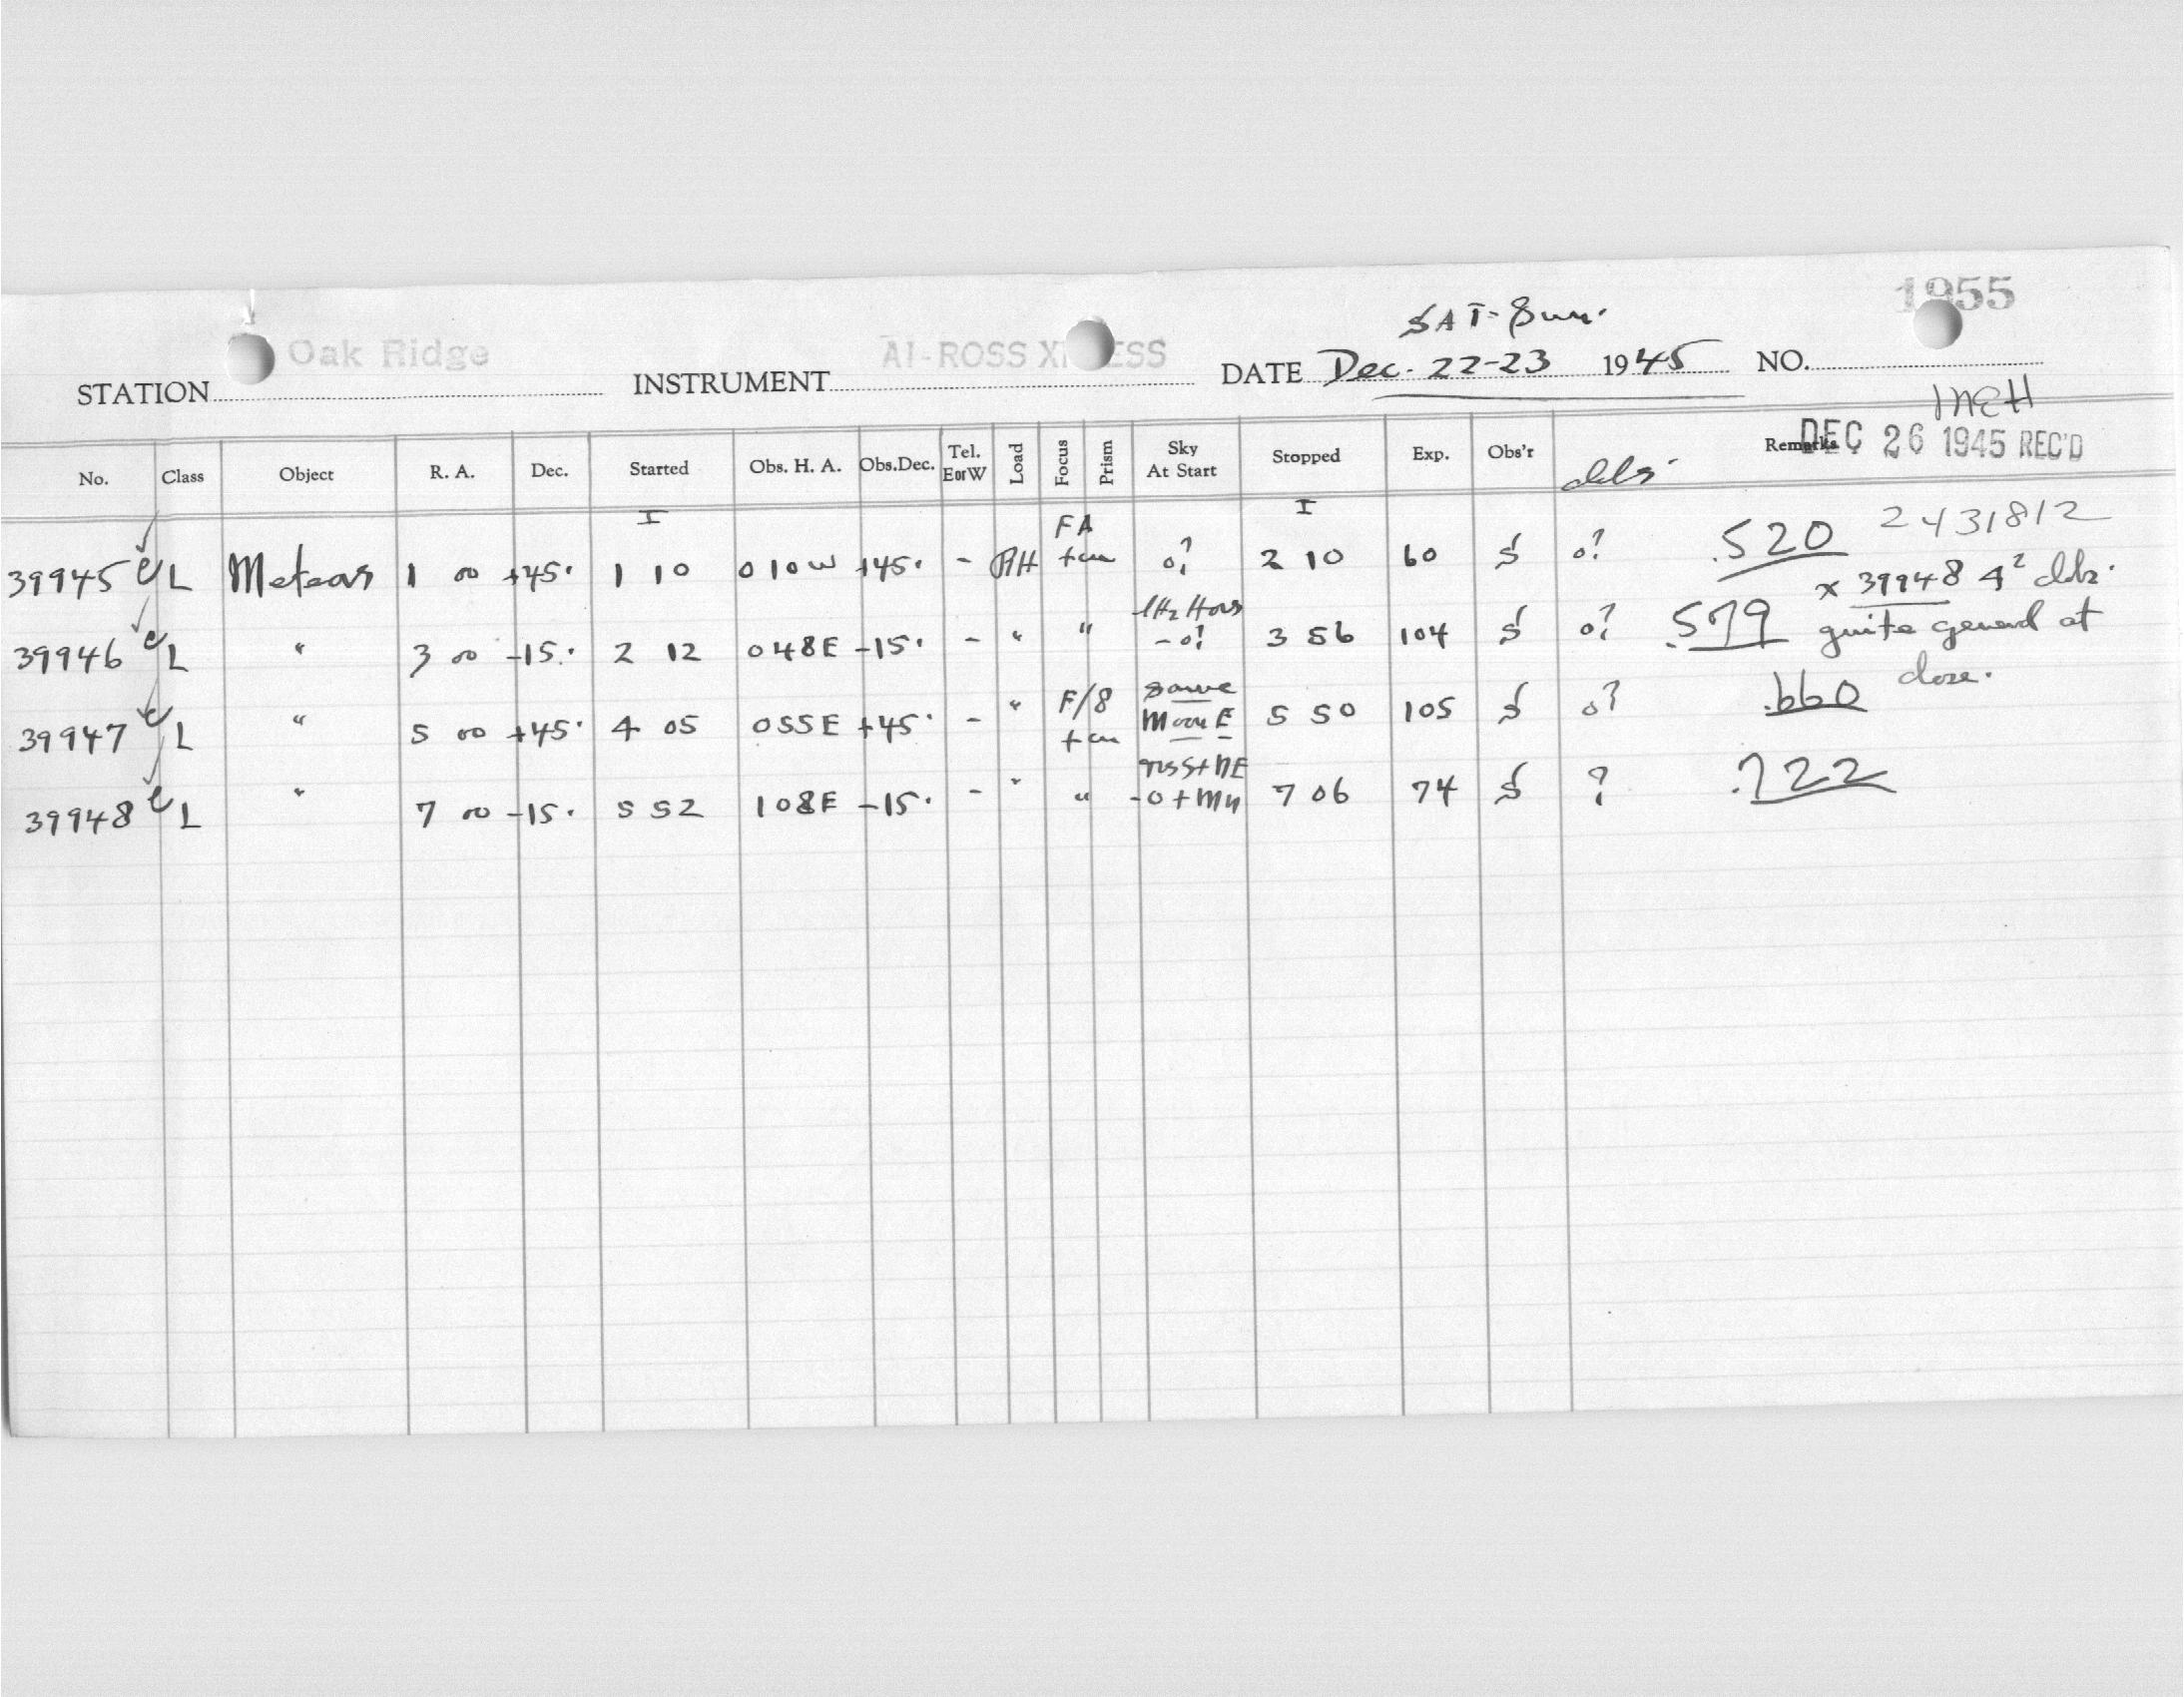 1955
SAT-Sun.
STATION Oak Ridge INSTRUMENT AI-ROSS XPRESS DATE Dec. 22-23 1945 NO.
DEC 26 1945 REC'D
No. Class Object R. A. Dec. Started Obs. H. A. Obs.Dec. Tel. E or W Load Focus Prism Sky At Start Stopped Exp. Obs'r Remarks
39945 e L Meteors 1 00 +45° 1 10 0 10 W +45° - RH FA 0? 2 10 60 S 0? .520 2431812
x 39948 4² clds.
39946 e L " 3 00 -15° 2 12 0 48 E -15° - " " -0? 3 56 104 S 0? .579 quite general at
close.
39947 e L " 5 00 +45° 4 05 0 55 E +45° - " F/8 same Moon E 5 50 105 S 0? .660
39948 e L " 7 00 -15° 5 52 1 08 E -15° - " " 7 06 74 S ? .722